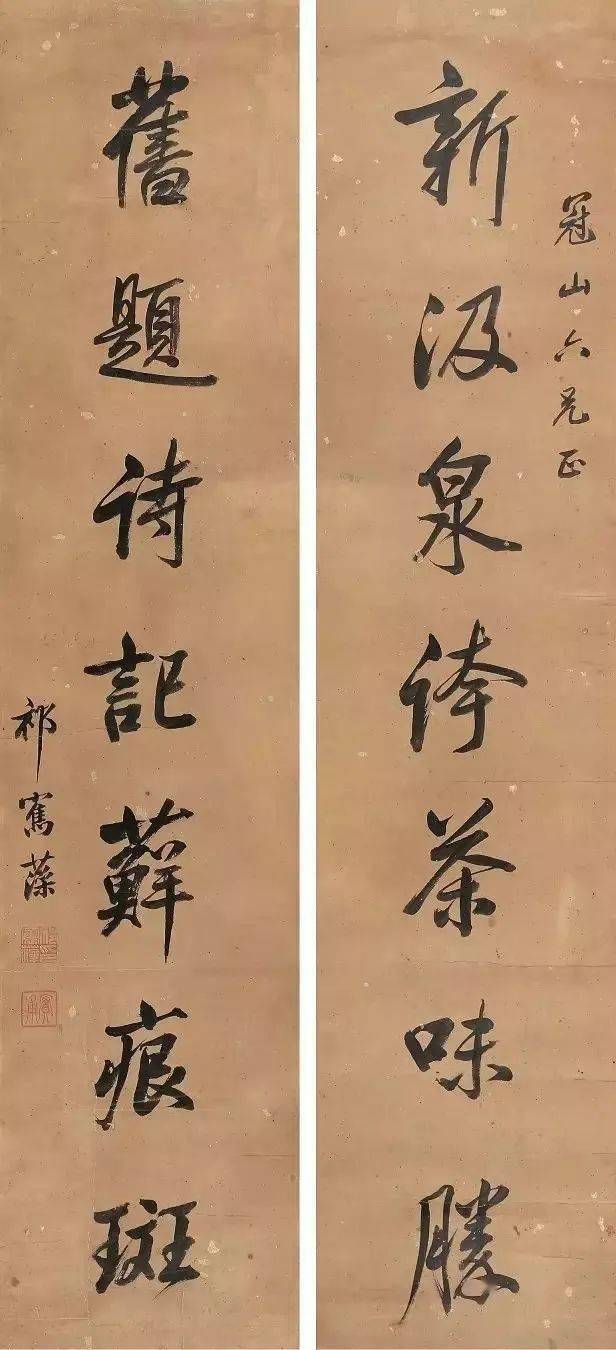 冠山六兄正
新汲泉誇茶味勝
舊題詩記蘚痕斑
祁寯藻